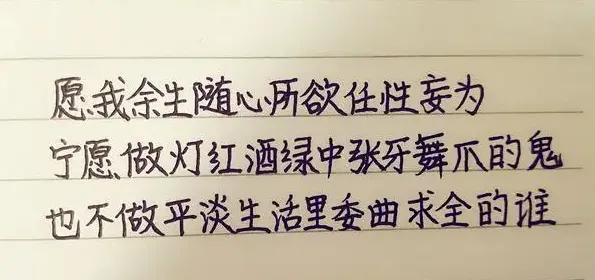 愿我余生随心所欲任性妄为
宁愿做灯红酒绿中张牙舞爪的鬼
也不做平淡生活里委曲求全的谁